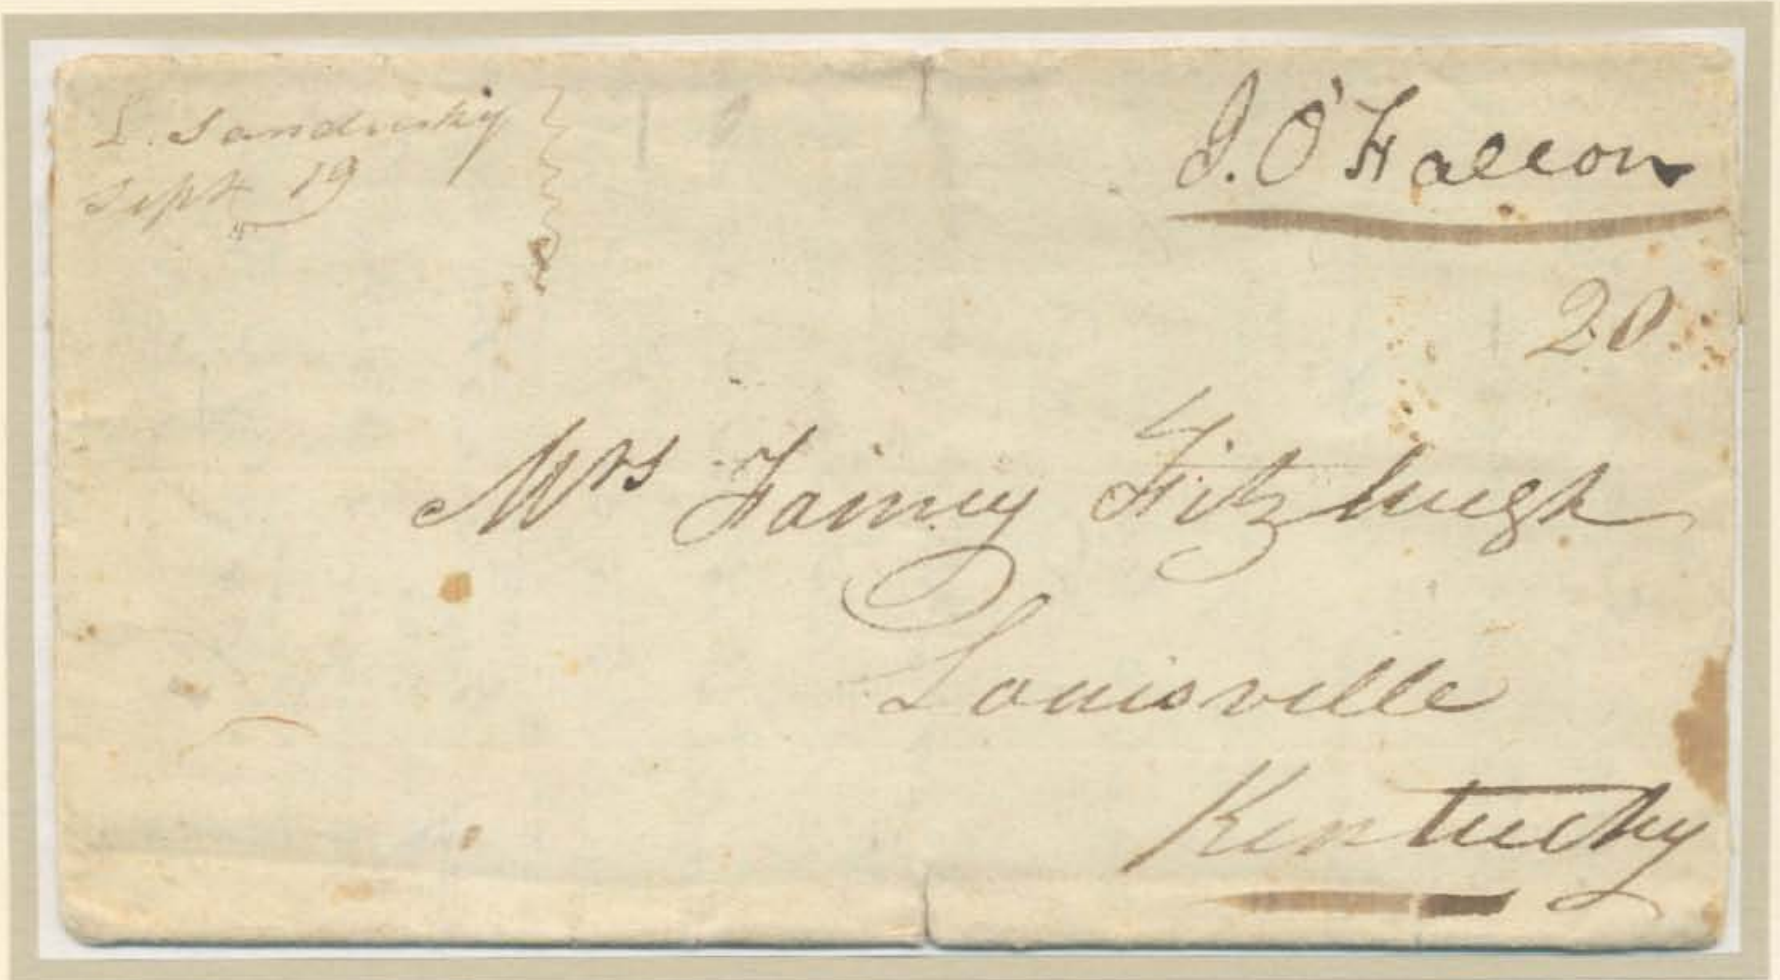 L. Sandusky
Sept 19
J. O'Fallon
20
Mrs Fanny Fitzhugh
Louisville
Kentucky